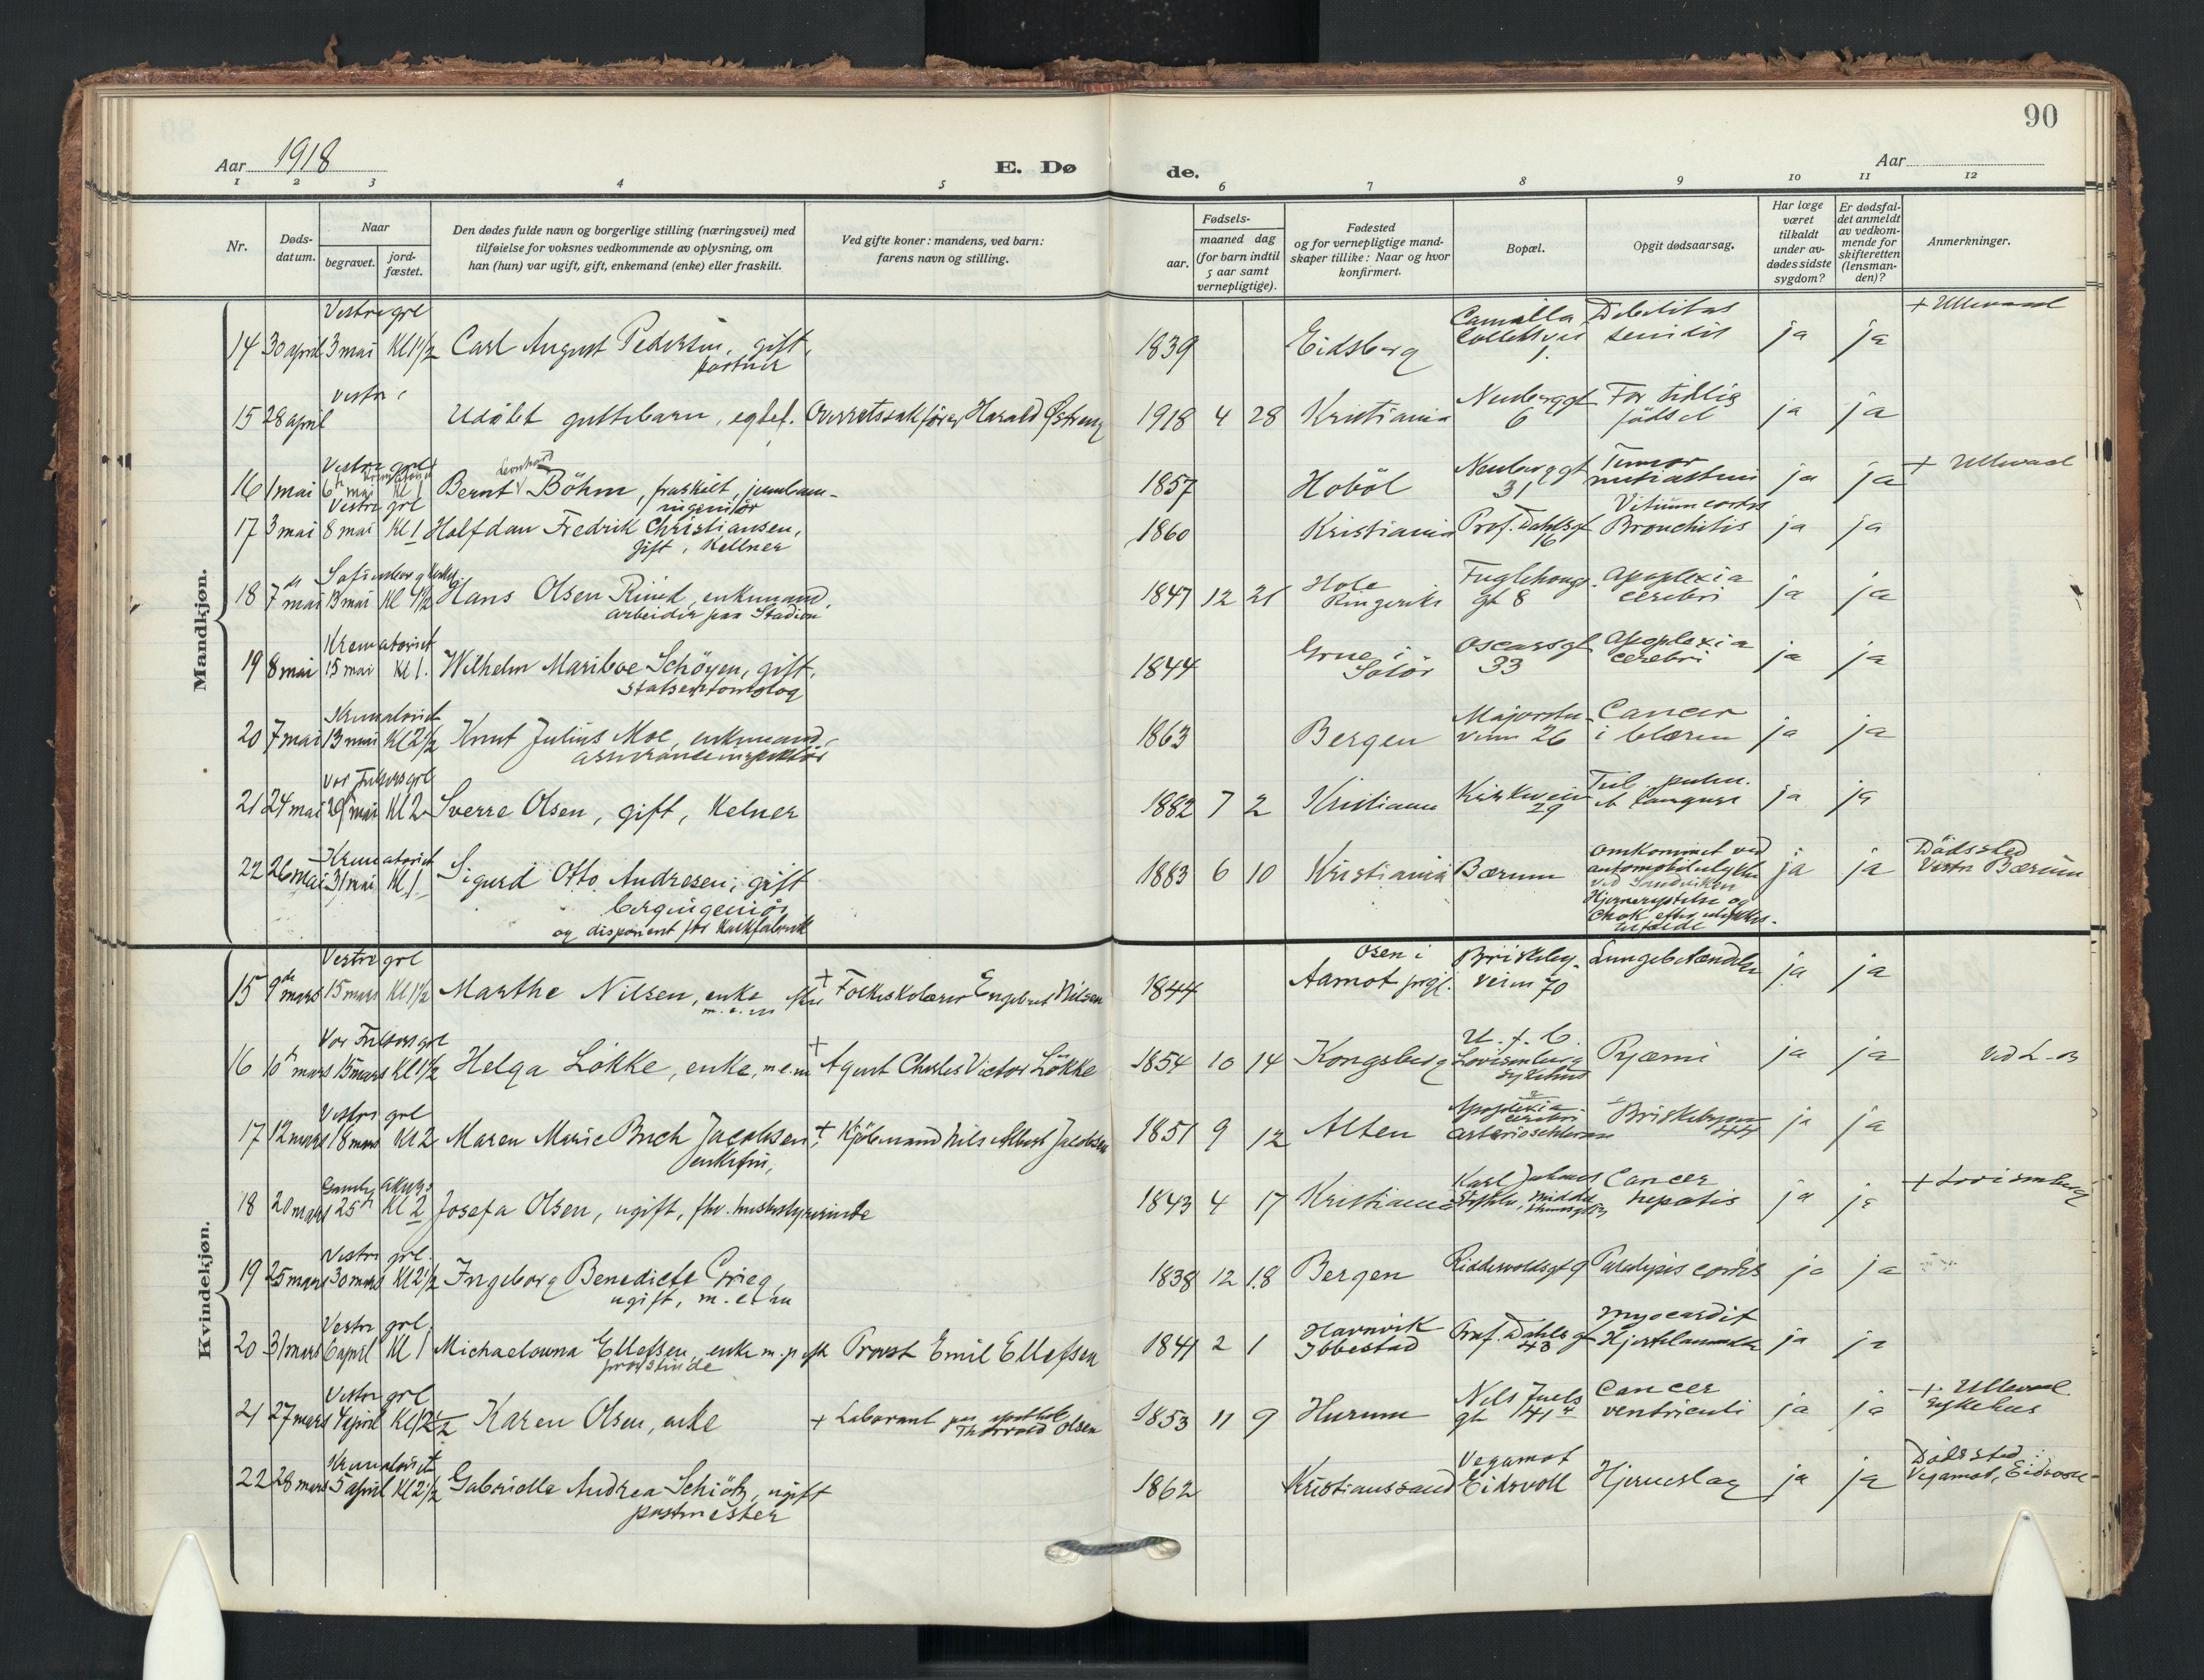 90
Aar 1918
E. Døde.
Aar
1 2 3 4 5 6 7 8 9 10 11 12
Nr.
Døds-
datum.
Naar
begravet.
jord-
fæstet.
Den dødes fulde navn og borgerlige stilling (næringsvei) med
tilføielse for voksnes vedkommende av oplysning, om
han (hun) var ugift, gift, enkemand (enke) eller fraskilt.
Ved gifte koner: mandens, ved barn:
farens navn og stilling.
Fødsels-
aar.
maaned dag
(for barn indtil
5 aar samt
vernepligtige).
Fødested
og for vernepligtige mand-
skaper tillike: Naar og hvor
konfirmert.
Bopæl.
Opgit dødsaarsag.
Har læge
været
tilkaldt
under av-
dødes sidste
sygdom?
Er dødsfal-
det anmeldt
av vedkom-
mende for
skifteretten
(lensman-
den)?
Anmerkninger.
Mandkjøn.
Vestre grl
14 30 april 3 mai Kl 1½ Carl August Pedersen, gift, 1839 Eidsberg Camilla Collettsvei 1. Debilitas senilis ja ja + Ullevaal
portner
vestre
15 28 april Udøbt guttebarn, egtef. Overretssakfører Harald Østreng 1918 4 28 Kristiania Neuberggt 6 For tidlig fødsel ja ja
Vestre grl
16 1 mai 6 mai Kl 1 Bernt Leonhard Böhm, fraskilt, jernbane- 1857 Hobøl Neuberggt 31 Tumor mediastini ja ja + Ullevaal
ingeniør
Vestre grl
17 3 mai 8 mai Kl 1 Halfdan Fredrik Christiansen, 1860 Kristiania Prof. Dahlsgt 16 Vitium cordis Bronchitis ja ja
gift, Kellner
Sofienberg
18 7de mai 13 mai Kl 1½ Hans Olsen, enkemand, 1847 12 21 Hole Ringerike Fuglehaugt gt 8 Apoplexia cerebri ja ja
arbeider paa Stadion
Krematoriet
19 8 mai 15 mai Kl 1. Wilhelm Mariboe Schøyen, gift, 1844 Grue i Solør Oscarsgt 33 Apoplexia cerebri ja ja
Statsentomolog
Krematoriet
20 7 mai 13 mai Kl 2½ Knut Julius Moe, enkemand, 1863 Bergen Majorstu- veien 26 Cancer i blæren ja ja
assuranceinspektør
Vor Frelsers grl
21 24 mai 29 mai Kl 2 Sverre Olsen, gift, Kelner 1882 7 2 Kristiania Kirkeveien 29 Tub. pulm. et laryngis ja ja
Krematoriet
22 26 mai 31 mai Kl 1 Sigurd Otto Andresen, gift 1883 6 10 Kristiania Bærum omkommet ved automobilulykke ved Sandviken ja ja Dødssted Vestre Bærum
bergingeniør
og disponent for Kalkfabrik
Hjernerystelse og
Chok efter ulykkes-
tilfælde
Kvindekjøn.
Vestre grl
15 9de mars 15 mars Kl 1½ Marthe Nilsen, enke m.e.m + Folkeskolærer Engebret Nilsen 1844 Osen i Aamot prgj. Briskeby- veien 70 Lungebetændelse ja ja
Vor Frelsers grl
16 10 mars 15 mars Kl 1½ Helga Løkke, enke, m.e.m + Agent Charles Victor Løkke 1854 10 14 Kongsberg U. f. b. Lovisenberg sykehus Pyæmi ja ja ved L-B
Vestre grl
17 12 mars 18 mars Kl 2 Maren Marie Buch Jacobsen + Kjøbmand Nils Albert Jacobsen 1851 9 12 Alten Apoplexia cerebri arteriosclerose Briskebyveien 44 ja ja
enkefru,
Gamle Akers
18 20 mars 25de Kl 2 Josefa Olsen, ugift, fhv. husbestyrerinde 1843 4 17 Kristiania Karl Johans Cancer hepatis ja ja + Lovisenberg
Vestre grl.
19 25 mars 30 mars Kl 2½ Ingeborg Benedicte Grieg, 1838 12 18 Bergen Riddervoldsgt 9 Paralysis cordis ja ja
ugift, m.e.m
Vestre grl.
20 31 mars 6 april Kl 1 Michaelowna Ellefsen, enke m.p. Provst Emil Ellefsen 1841 2 1 Havnvik Ibbestad Prof. Dahls gt 43 Myocardit Hjertelammelse ja ja
provstinde
Vestre grl
21 27 mars 4 april Kl 12½ Karen Olsen, enke + Laborant paa apothek Thorvald Olsen 1853 11 9 Hurum Nils Juels gt 41 Cancer ventriculi ja ja + Ullevaal Sykehus
Krematoriet
22 28 mars 5 april Kl 2½ Gabrielle Andrea Schiøtz, ugift 1862 Kristianssand Vegamot Eidsvoll Hjerneslag ja ja Dødssted: Vegamot, Eidsvoll
postmester